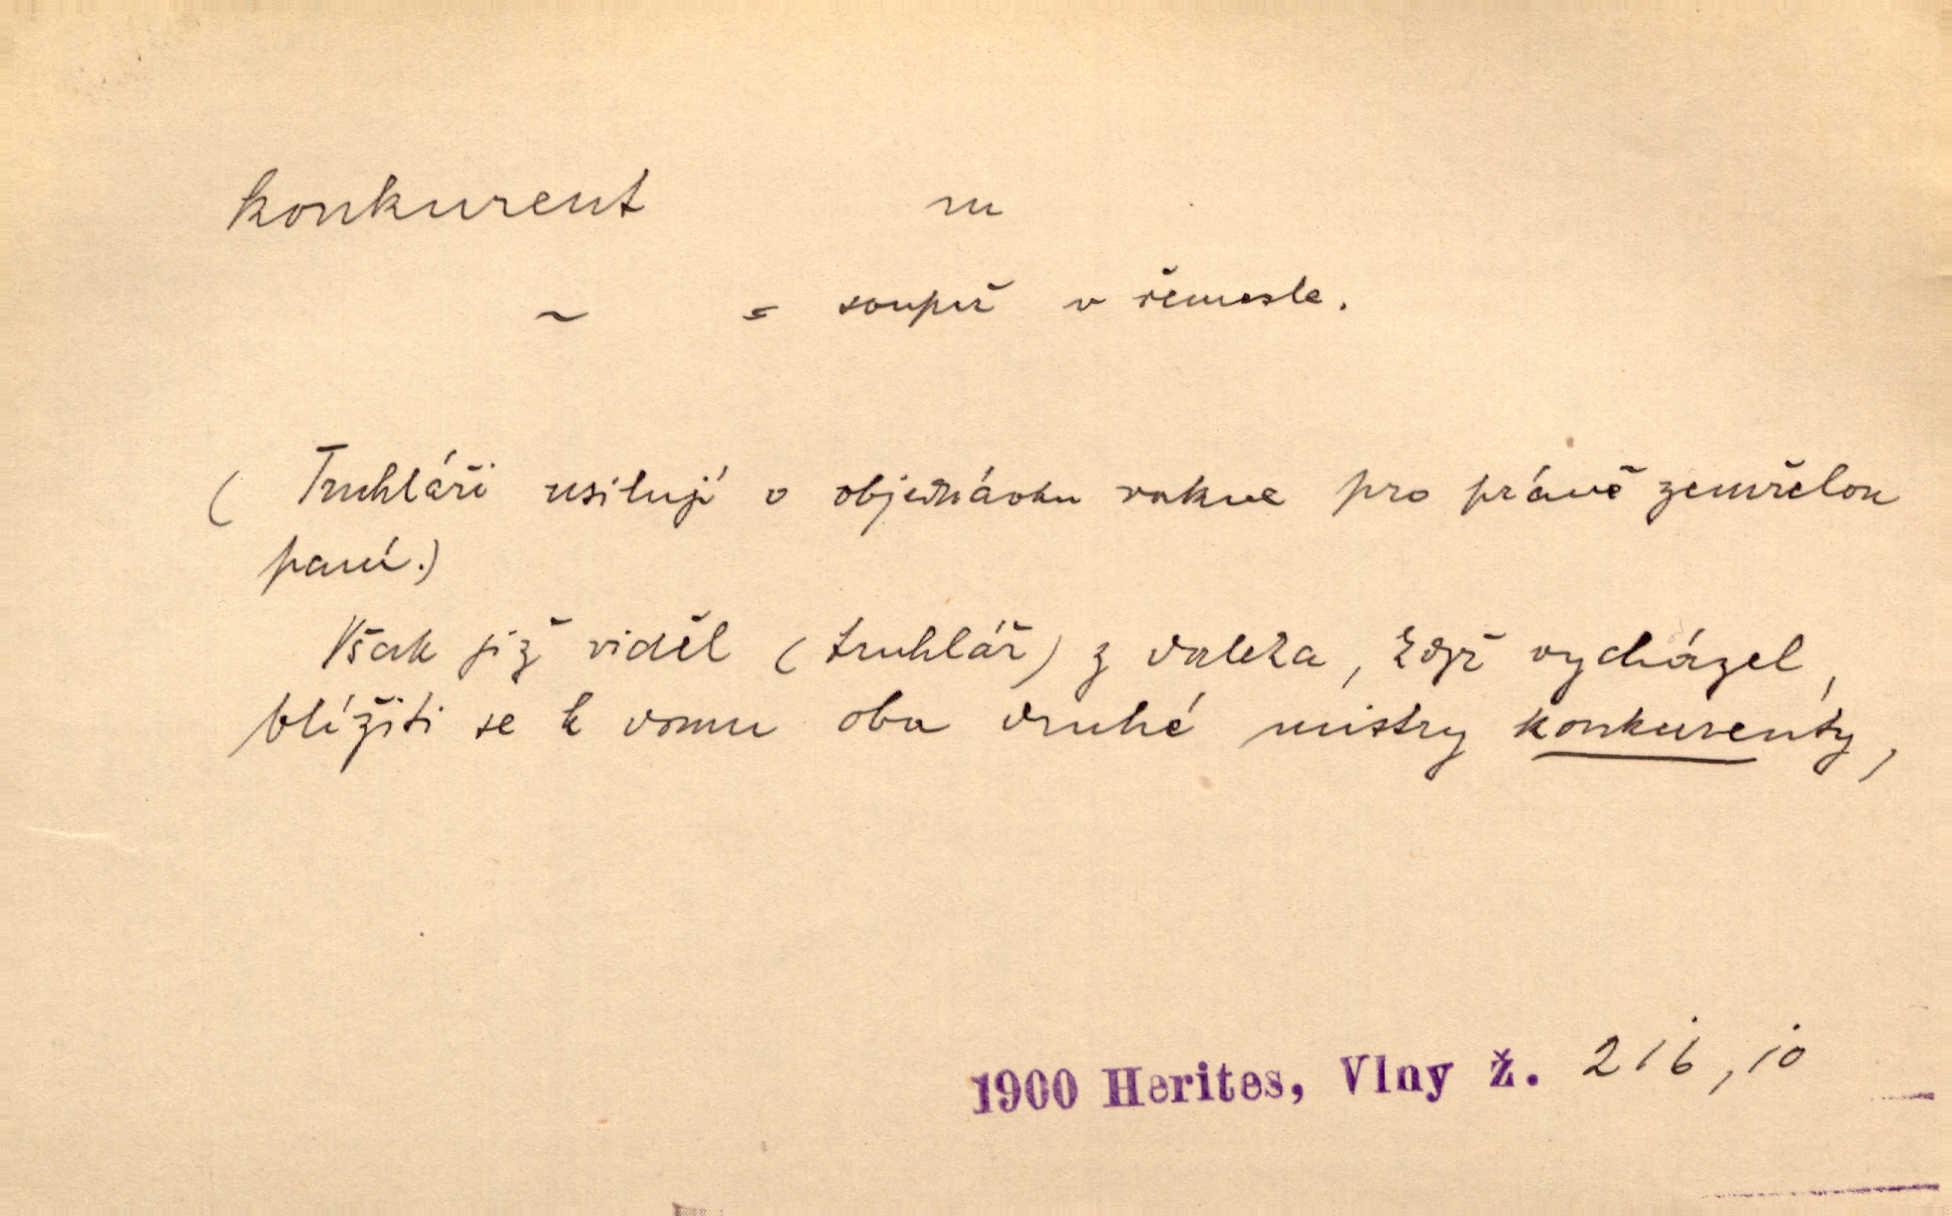 konkurent m
~ = soupeř v řemesle.
( Truhláři usilují o objednávku rakve pro právě zemřelou
paní.)
Však již viděl (truhlář) z daleka, když vycházel,
blížiti se k domu oba druhé mistry konkurenty,
1900 Herites, Vlny ž. 216, 10